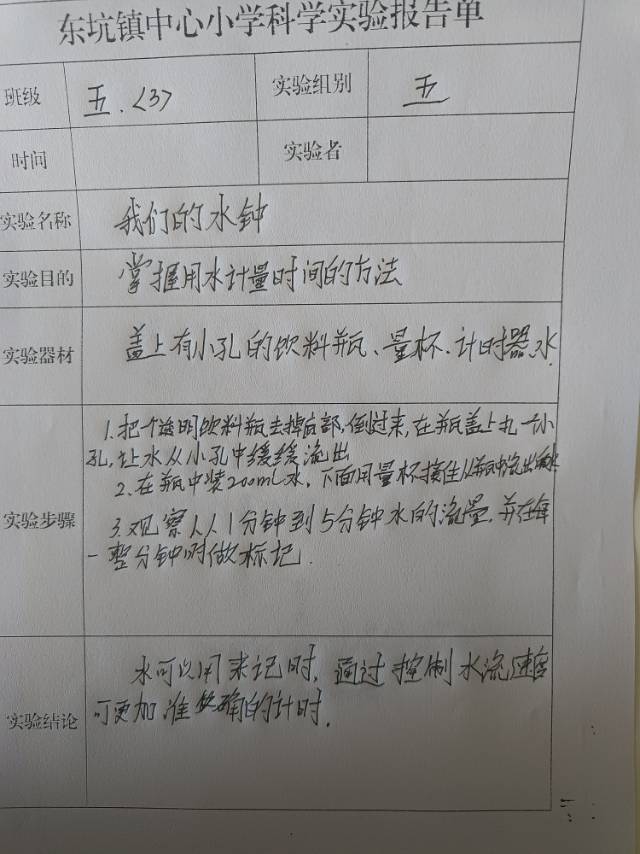 东坑镇中心小学科学实验报告单
班级 五.〈3〉 实验组别 五
时间 实验者
实验名称 我们的水钟
实验目的 掌握用水计量时间的方法
实验器材 盖上有小孔的饮料瓶、量杯、计时器水
1.把个透明饮料瓶去掉底部,倒过来,在瓶盖上扎一小
孔,让水从小孔中缓缓流出
2.在瓶中装200mL水,下面用量杯接住从瓶中流出的水
实验步骤 3.观察从1分钟到5分钟水的流量,并在每
一整分钟时做标记.
水可以用来记时,通过控制水流速度
实验结论 可更加准确的计时.